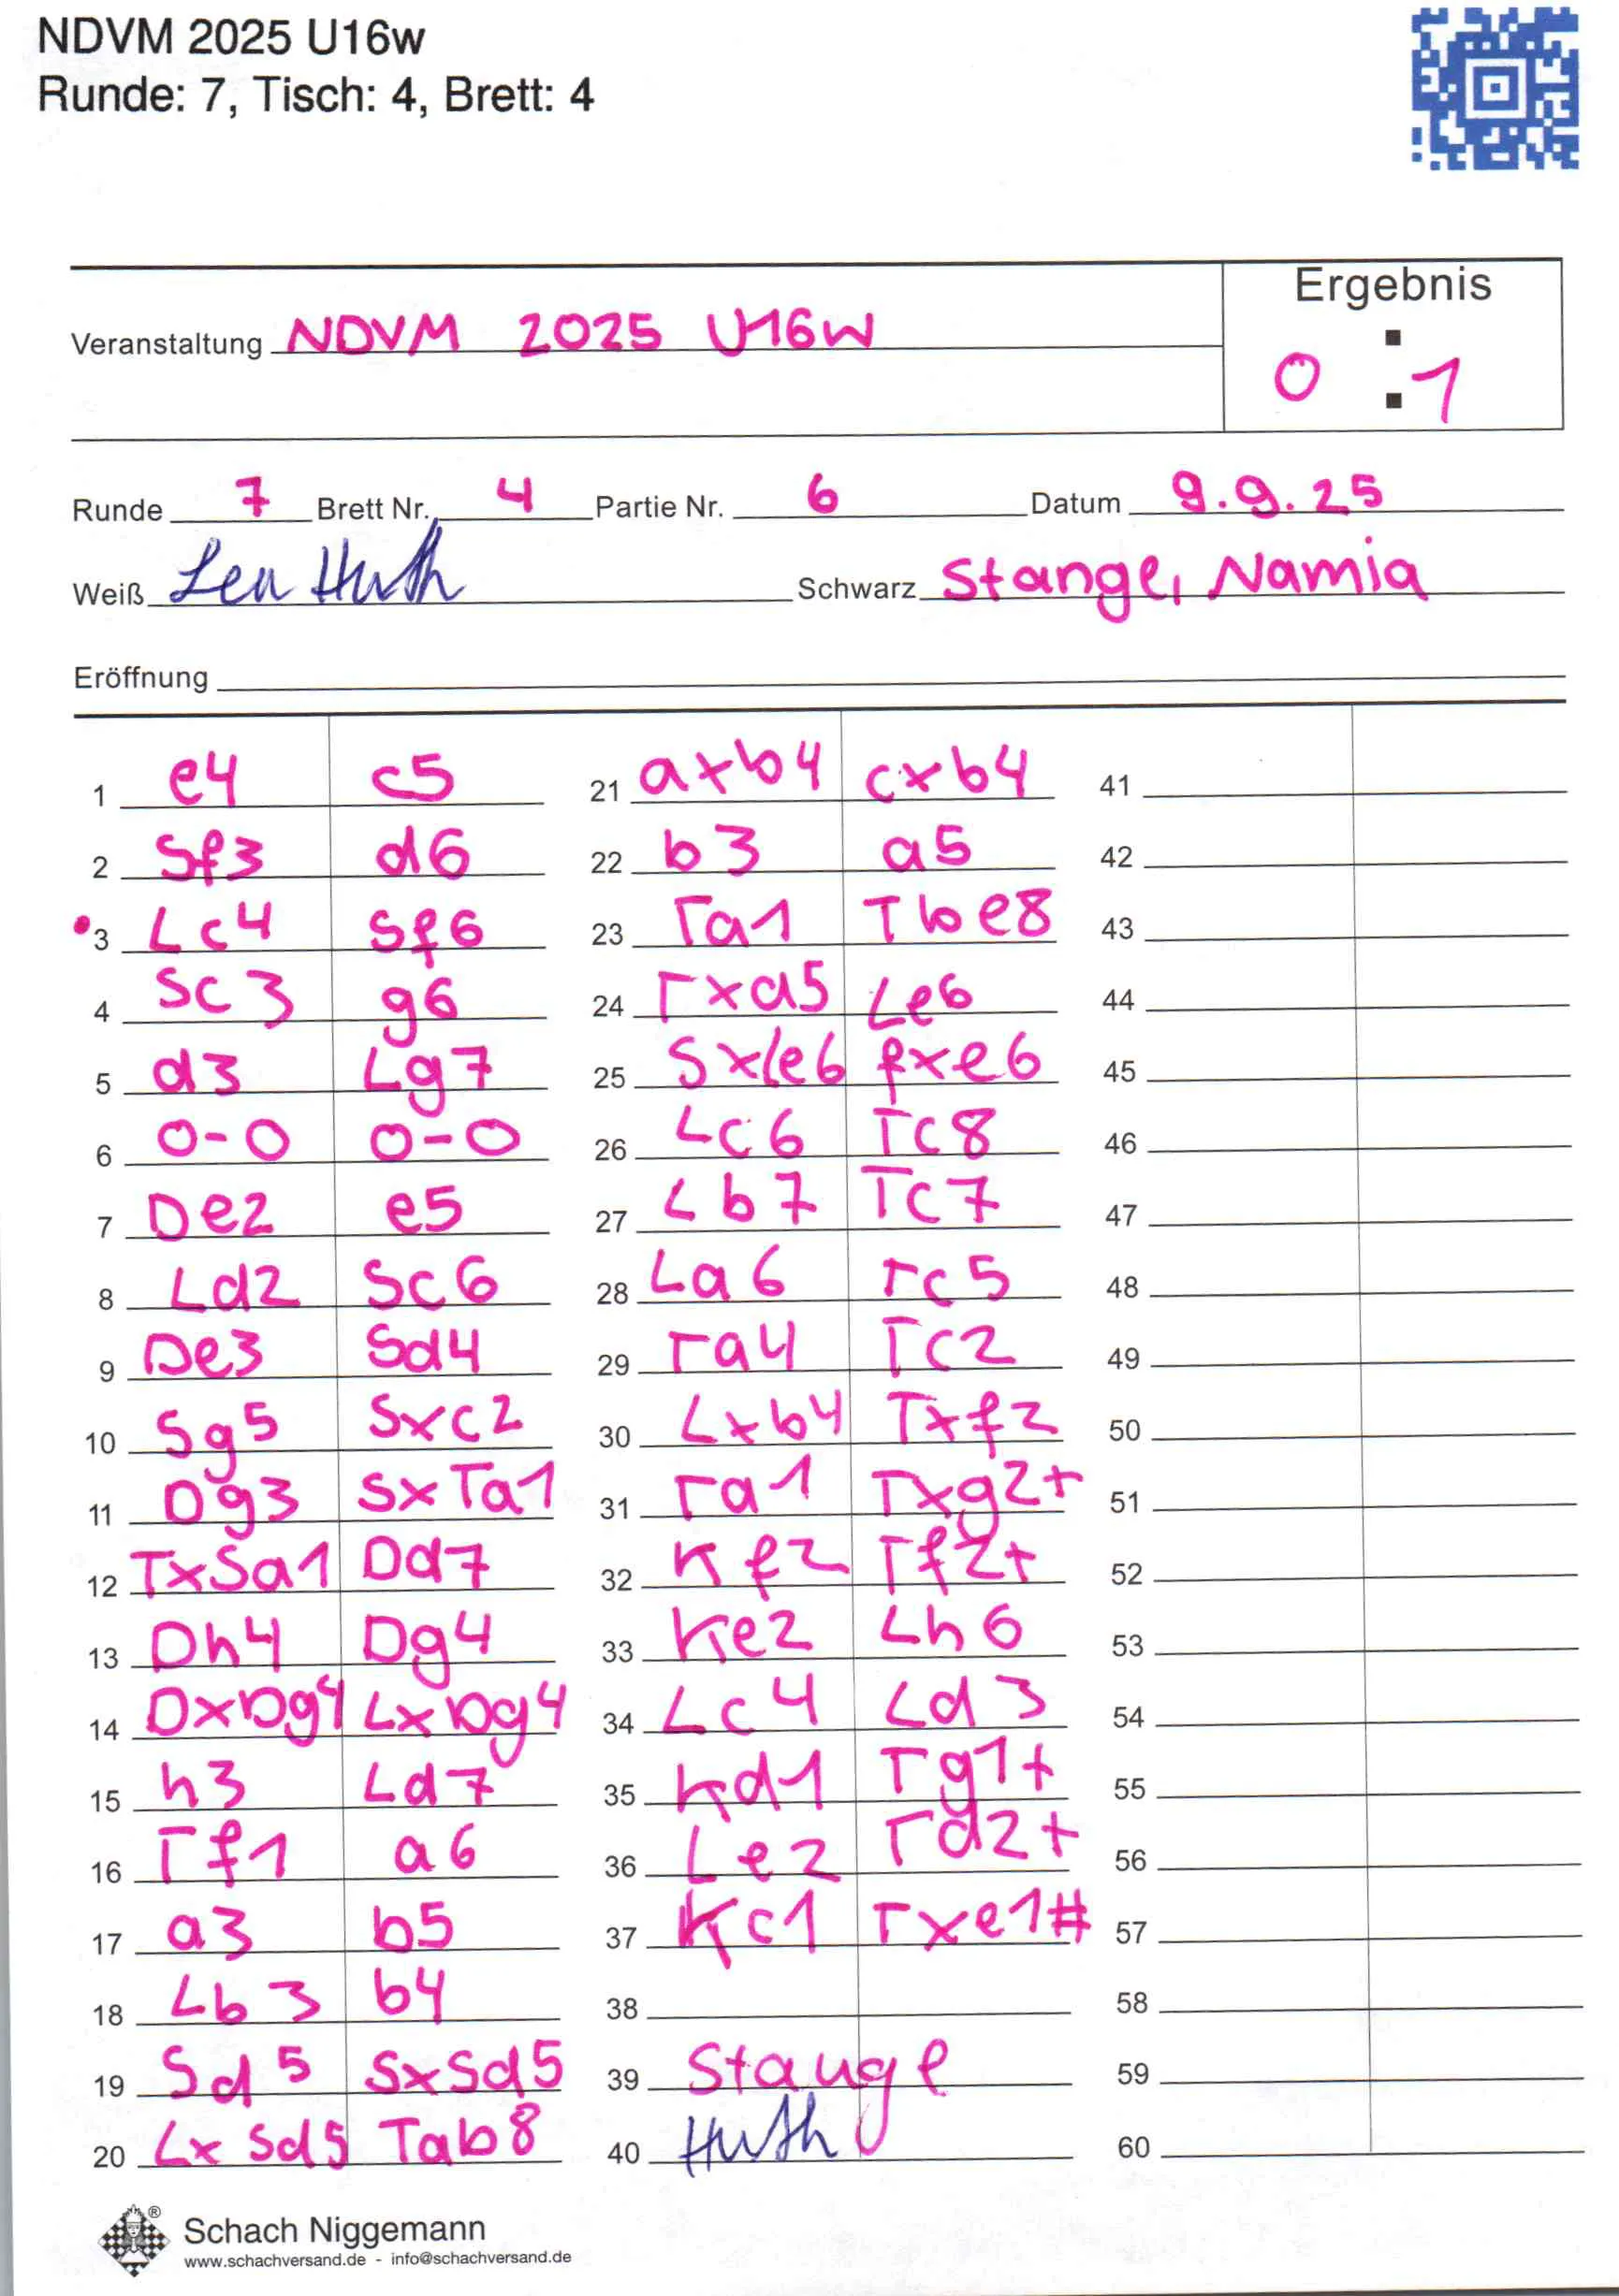 NDVM 2025 U16w
Runde: 7, Tisch: 4, Brett: 4
Ergebnis
Veranstaltung NDVM 2025 U16W
0 : 1
Runde 7 Brett Nr. 4 Partie Nr. 6 Datum 9.9.25
Weiß Lea Huth Schwarz Stange, Namia
Eröffnung
1 e4 c5
2 Sf3 d6
3 Lc4 Sf6
4 Sc3 g6
5 d3 Lg7
6 0-0 0-0
7 De2 e5
8 Ld2 Sc6
9 De3 Sd4
10 Sg5 Sxc2
11 Dg3 SxTa1
12 TxSa1 Dd7
13 Dh4 Dg4
14 DxDg4 LxDg4
15 h3 Ld7
16 Tf1 a6
17 a3 b5
18 Lb3 b4
19 Sd5 SxSd5
20 LxSd5 Tab8
21 axb4 cxb4
22 b3 a5
23 Ta1 Tbe8
24 Txa5 Le6
25 Sxle6 fxe6
26 Lc6 Tc8
27 Lb7 Tc7
28 La6 Tc5
29 Ta4 Tc2
30 Lxb4 Txf2
31 Ta1 Txg2+
32 Kf2 Tf2+
33 Ke2 Lh6
34 Lc4 Ld3
35 Kd1 Tg1+
36 Le2 Td2+
37 Kc1 Txe1#
38
39 Stange
40 Huth
41
42
43
44
45
46
47
48
49
50
51
52
53
54
55
56
57
58
59
60
®
Schach Niggemann
www.schachversand.de - info@schachversand.de